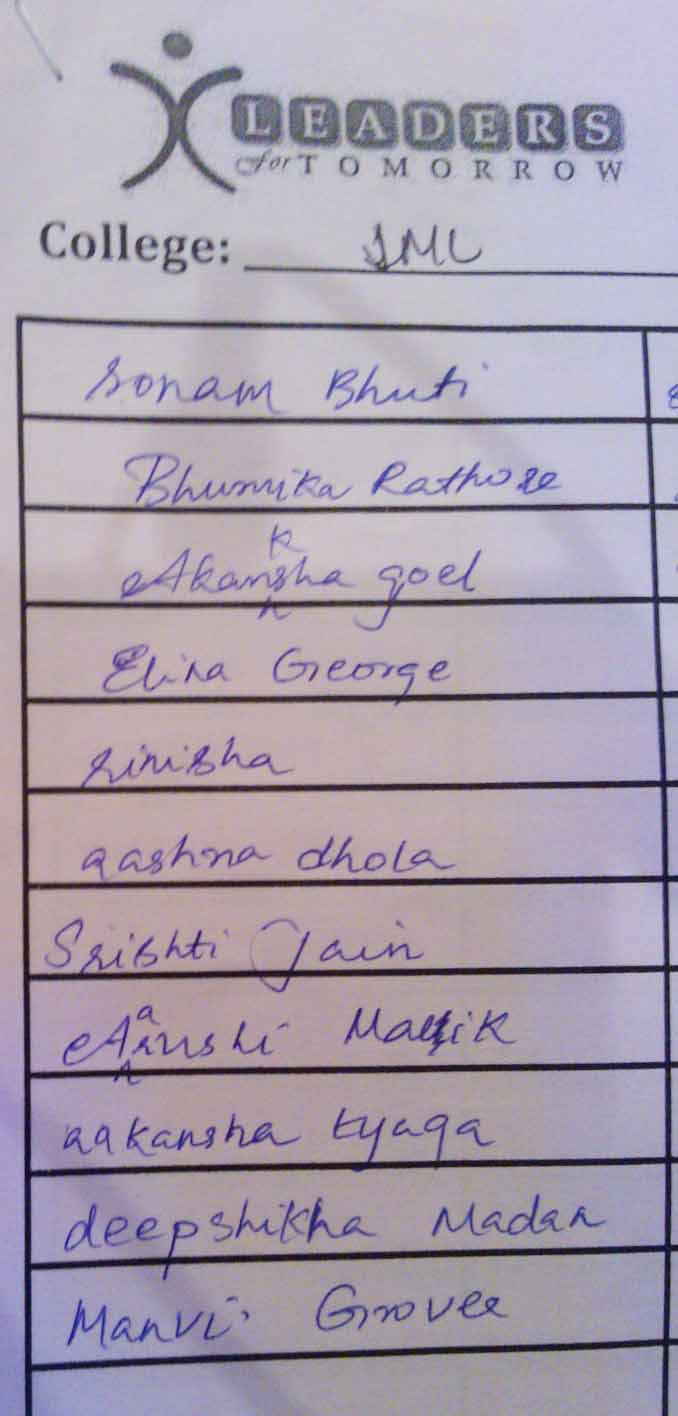 LEADERS
for TOMORROW
College: JMC
Sonam Bhuti
Bhumika Rathore
Akanksha goel
Elina George
Sinisha
aashna dhola
Srishti Jain
Aarushi Malik
aakansha tyaga
deepshikha Madan
Manvi Grover